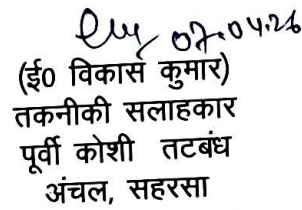 07.04.26
(ई0 विकास कुमार)
तकनीकी सलाहकार
पूर्वी कोशी तटबंध
अंचल, सहरसा